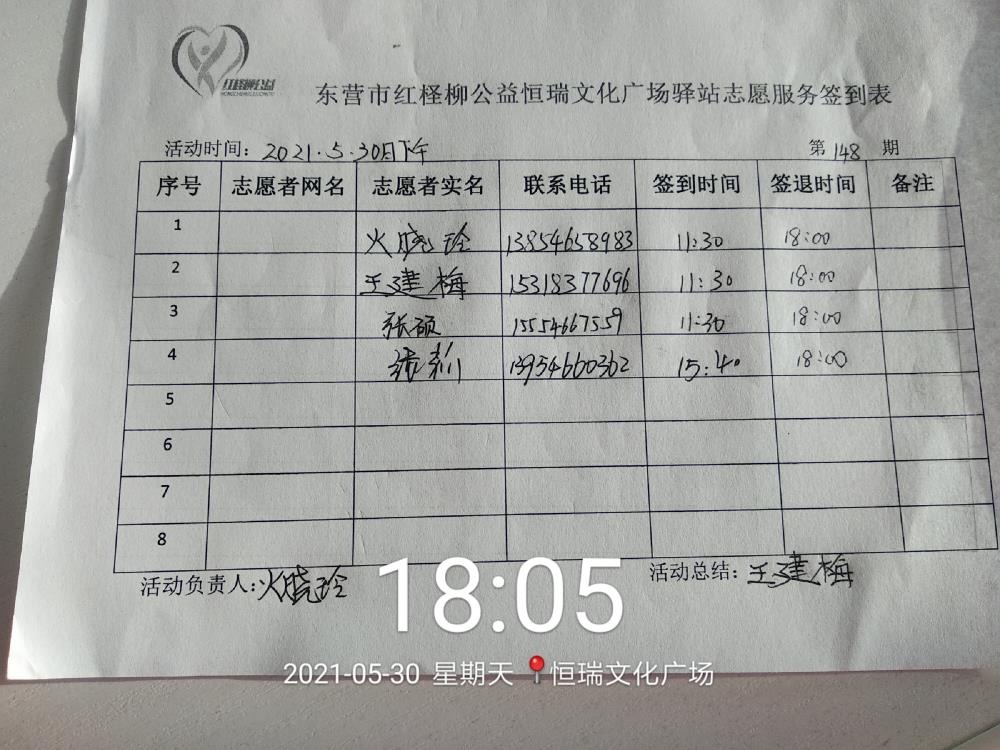 红柽柳公益
东营市红柽柳公益恒瑞文化广场驿站志愿服务签到表
活动时间：2021.5.30日下午 第148期
序号 志愿者网名 志愿者实名 联系电话 签到时间 签退时间 备注
1 火晓玲 13854658983 11:30 18:00
2 王建梅 15318377696 11:30 18:00
3 张硕 15554667559 11:30 18:00
4 13954660362 15:40 18:00
5
6
7
8
活动负责人:火晓玲 活动总结:王建梅
18:05
2021-05-30 星期天 恒瑞文化广场